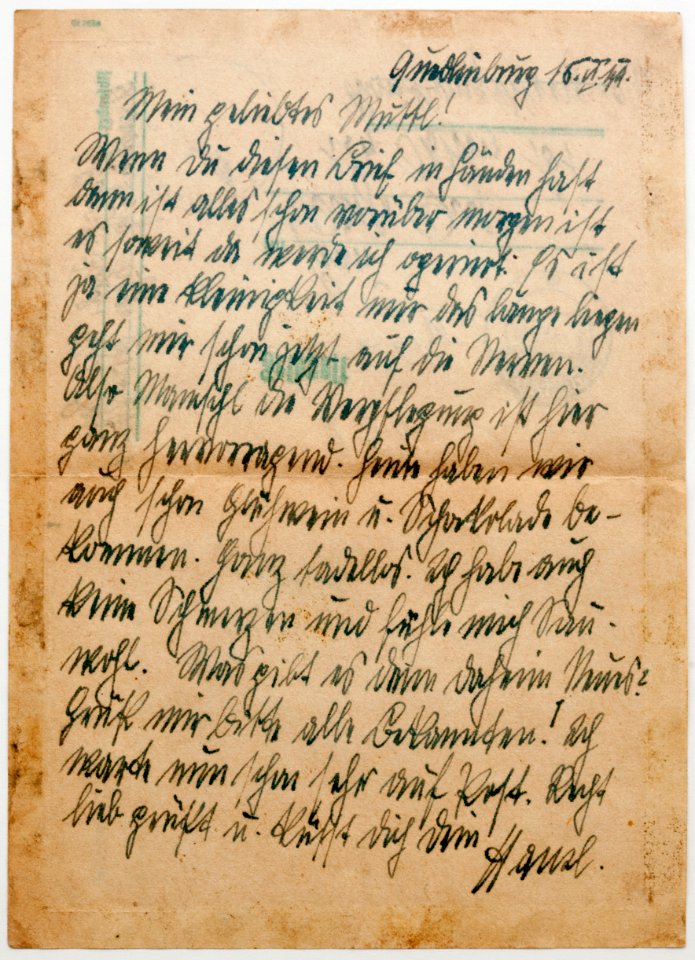 Quedlinburg 15.II.44.
Mein geliebtes Muttl!
Wenn du diesen Brief in Händen hast
dann ist alles schon vorüber morgen ist
es soweit da werde ich operiert. Es ist
ja eine Kleinigkeit nur das lange liegen
geht mir schon jetzt auf die Nerven.
Also Mamschl die Verpflegung ist hier
ganz hervorragend. Heute haben wir
auch schon Glühwein u. Schokolade be-
kommen. Ganz tadellos. Ich habe auch
keine Schmerzen und fühle mich Sau-
wohl. Was gibt es denn daheim Neues?
Grüß mir bitte alle Bekannten! Ich
warte nun schon sehr auf Post. Recht
lieb grüßt u. küsst dich dein
Hansl.